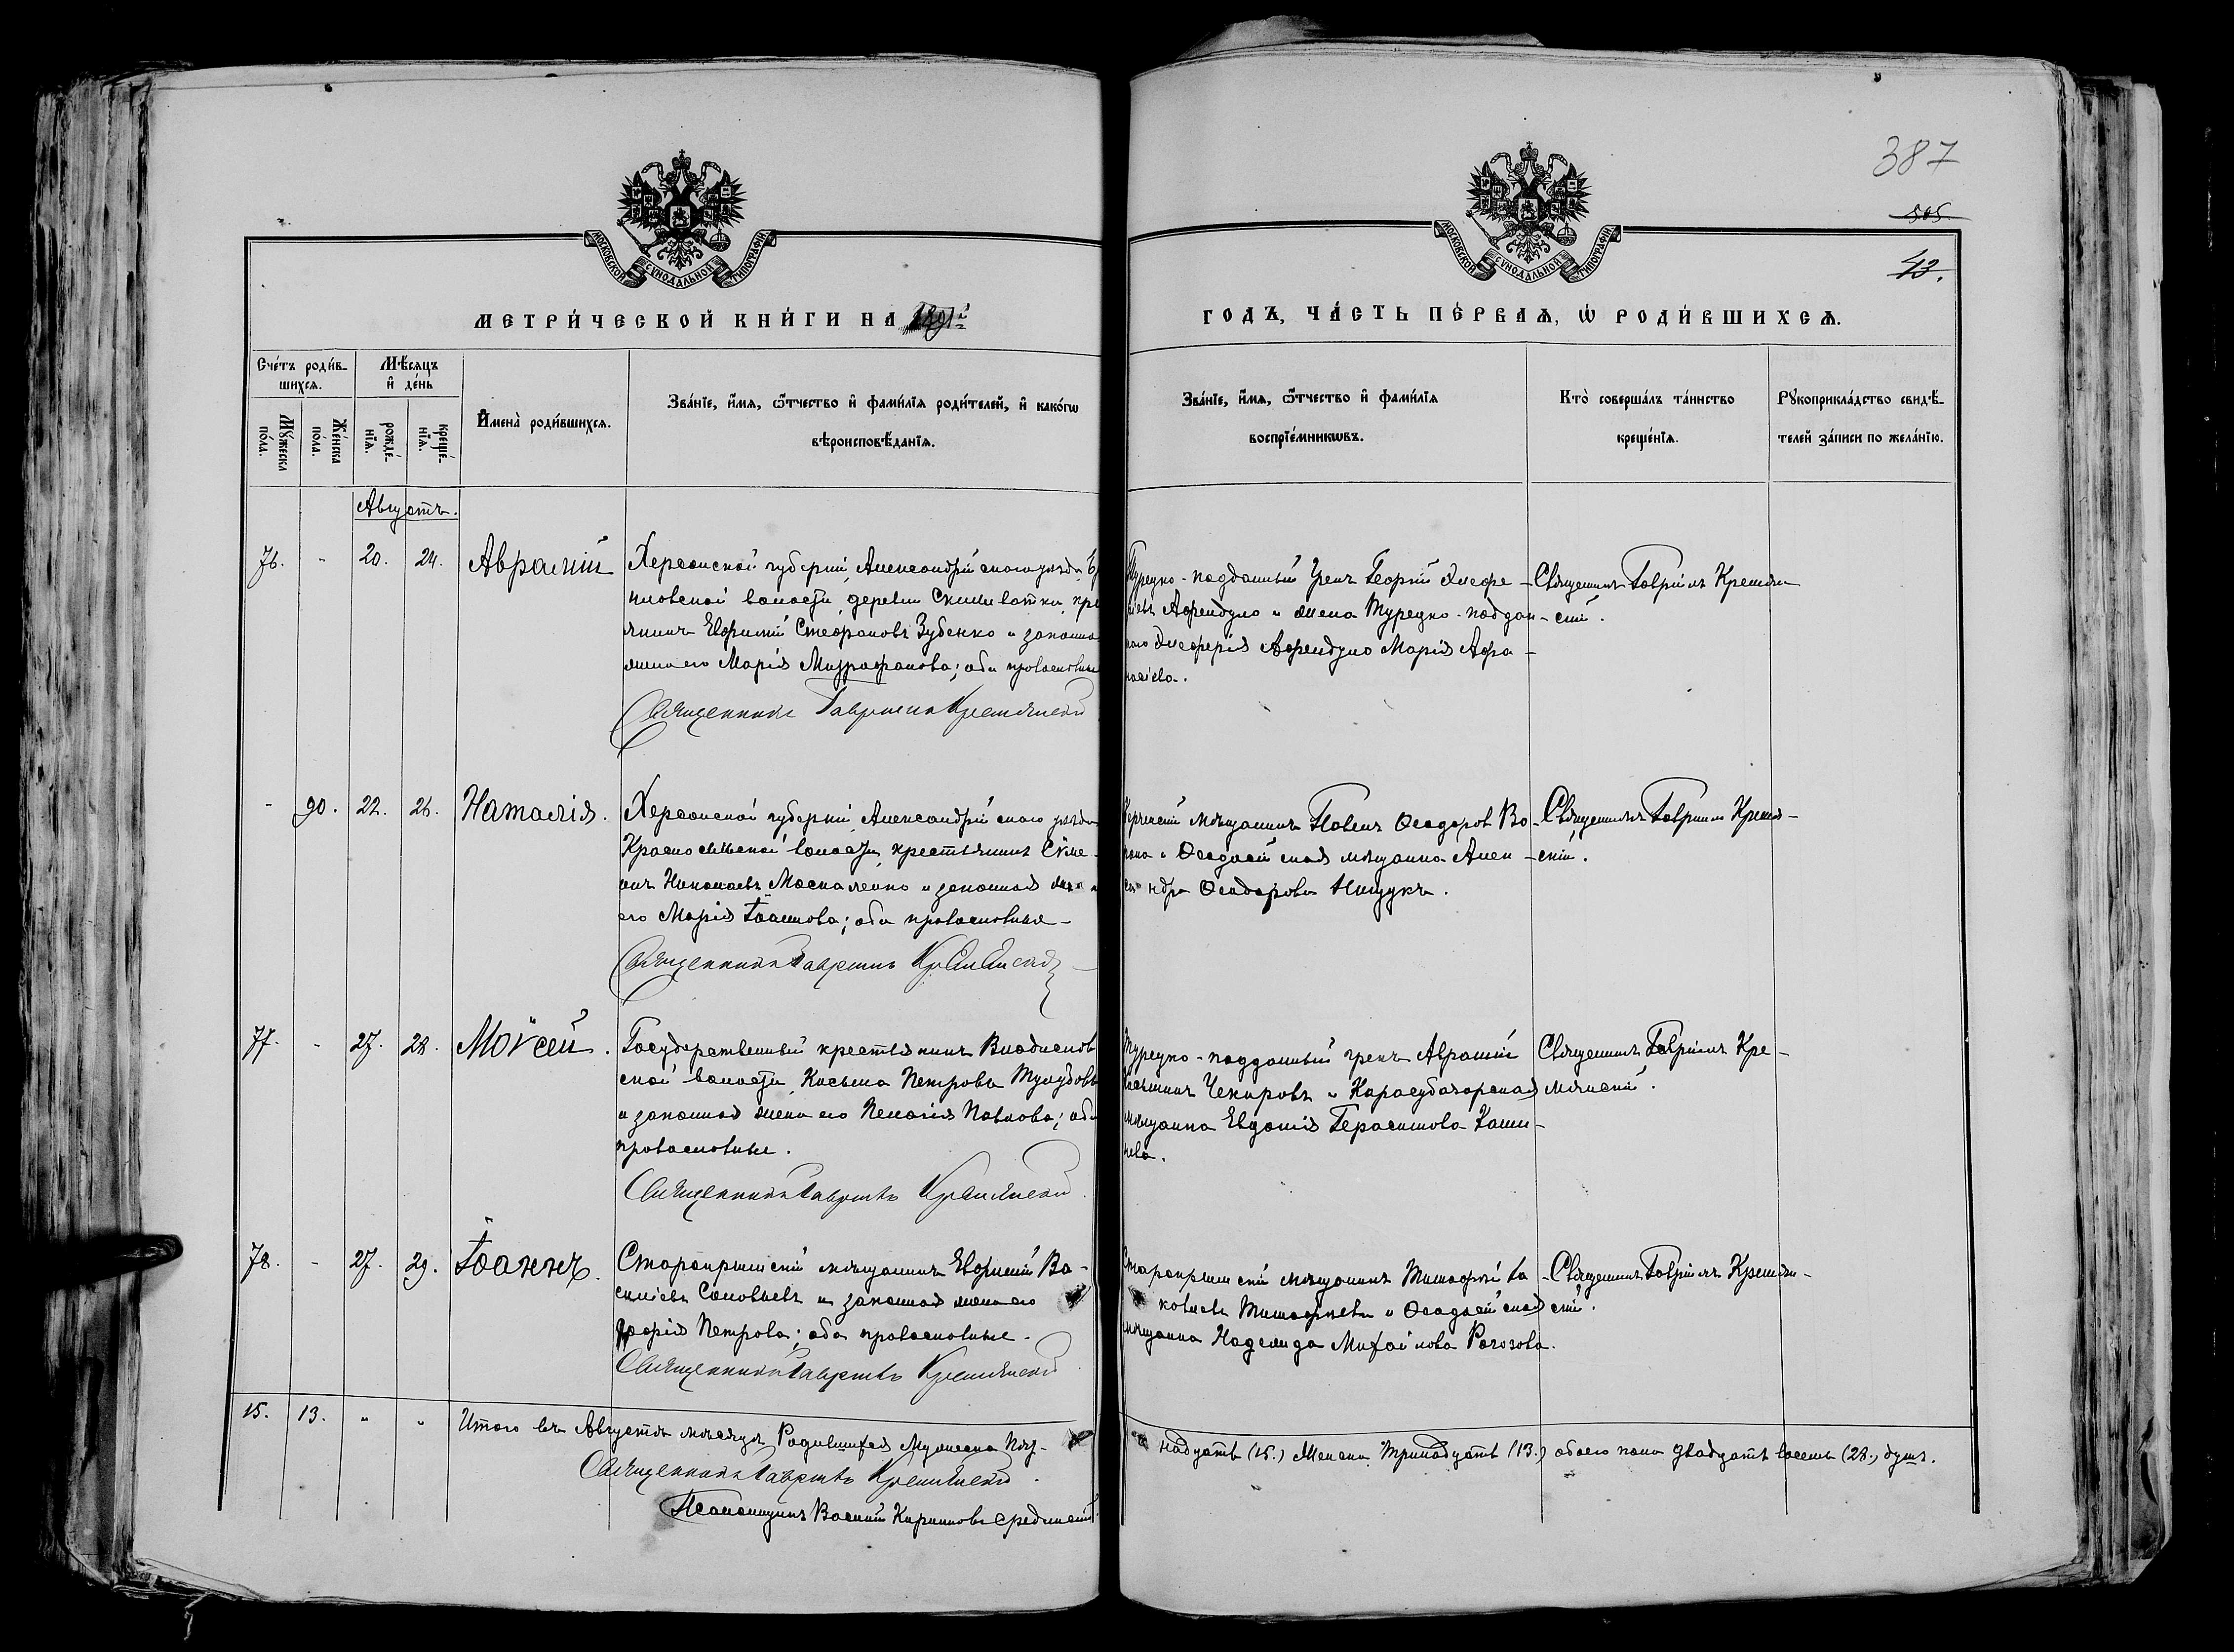 387
505
43.
МОСКОВСКОЙ СѴНОДАЛЬНОЙ ТИПОГРАФІИ
МОСКОВСКОЙ СѴНОДАЛЬНОЙ ТИПОГРАФІИ
МЕТРИ́ЧЕСКОЙ КНИ́ГИ НА 1891й
ГОДЪ, ЧА́СТЬ ПЕ́РВАѦ, Ѡ РОДИ́ВШИХСѦ.
Сче́тъ роди́в-
шихсѧ.
Мѣ́сѧцъ
и҆ де́нь
И҆мена̀ роди́вшихсѧ.
Зва́нїе, и҆́мѧ, ѻ҆́тчество и҆ фами́лїѧ роди́телей, и҆ како́гѡ
вѣроисповѣ́данїѧ.
Мꙋ́жеска
по́ла.
Же́нска
по́ла.
рожде́-
нїѧ.
креще́-
нїѧ.
Зва́нїе, и҆́мѧ, ѻ҆́тчество и҆ фами́лїѧ
воспрїе́мникѡвъ.
Кто̀ соверша́лъ та́инство
креще́нїѧ.
Рꙋкоприкла́дство свидѣ́-
телей за́писи по жела́нїю.
Августъ.
76. - 20. 24. Авраамій
Херсонской губерніи, Александрійскаго уѣзда,
ниловской волости, деревни Скилеватки,
янинъ Евфимій Стефановъ Зубенко и законна
жена его Марія Митрофанова; оба православные
Священникъ Гавріилъ Кремянскій
Турецко-подданный Грекъ Георгій Елефе-
ріевъ Афендуло и жена Турецко-поддан-
наго Елеферія Афендуло Марія Афа-
насіева.
Священникъ Гавріилъ Кремян-
скій.
- 90. 22. 26. Наталія.
Херсонской губерніи, Александрійскаго уѣзда
Красносельской волости, крестьянинъ Симе-
онъ Николаевъ Москаленко и законная жена
его Марія Іоаннова; оба православные-
Священникъ Гавріилъ Кремянскій
Керченскій мѣщанинъ Павелъ Ѳеодоров Во-
рона и Ѳеодосійская мѣщанка Алек-
сандра Ѳеодорова Нищукъ.
Священникъ Гавріилъ Кремян-
скій.
77. - 27. 28. Моѵсей.
Государственный крестьянинъ Владислав
ской волости, Косьма Петровъ Тулубовъ
и законная жена его Пелагія Павлова; оба
православные.
Священникъ Гавріилъ Кремянскій
Турецко-подданный грекъ Авраамій
Чекировъ и Карасубазарская
мѣщанка Евдокія Герасимова Каши-
нева.
Священникъ Гавріилъ Кре-
мянскій.
78. - 27. 29. Іоаннъ.
Старокрымскій мѣщанинъ Евфимій Ва-
силіевъ Соловьевъ и законная жена его
Софія Петрова; оба православные.
Священникъ Гавріилъ Кремянскій
Старокрымскій мѣщанинъ Тимофей Іа
ковлевъ Тимофеевъ и Ѳеодосійская
мѣщанка Надежда Михайлова Рогозова.
Священникъ Гавріилъ Кремян-
скій.
15. 13. " " Итого въ Августѣ мѣсяцѣ Родившихся Мужеска Пят-
надцать (15.) Женска Тринадцать (13.) обоего пола двадцать восемь (28.) душъ.
Священникъ Гавріилъ Кремянскій.
Псаломщикъ Василій Кирилловъ Срединскій